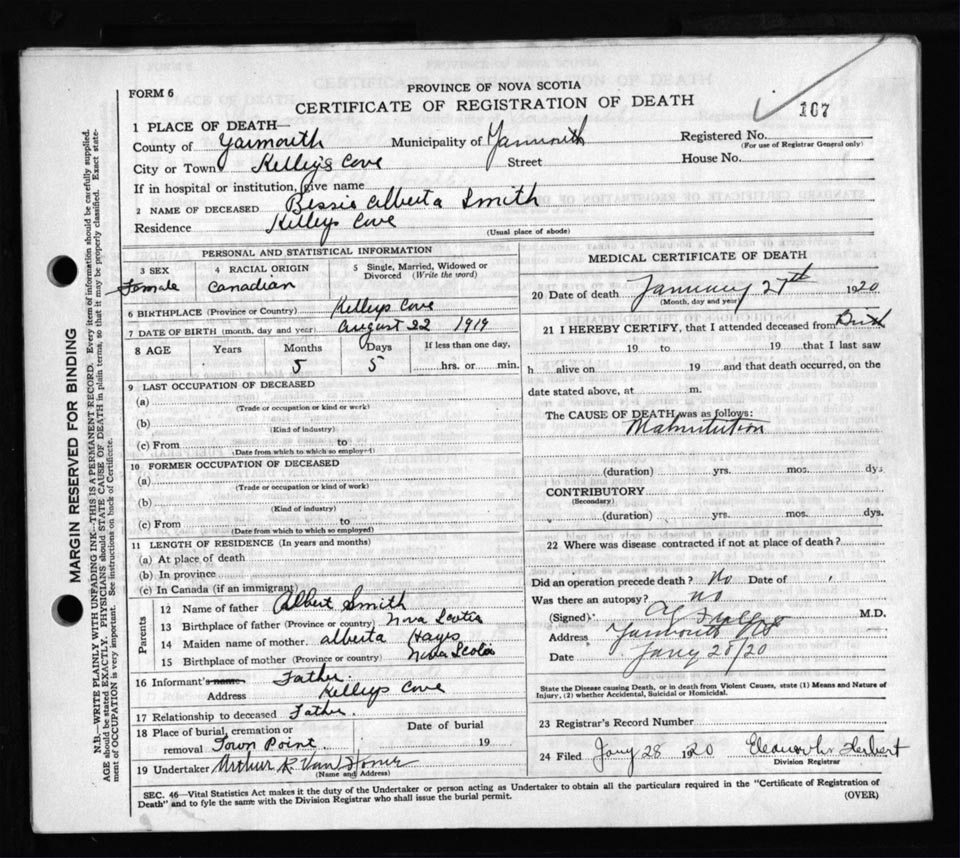 FORM 6
PROVINCE OF NOVA SCOTIA
CERTIFICATE OF REGISTRATION OF DEATH
107
1 PLACE OF DEATH—
County of Yarmouth Municipality of Yarmouth Registered No.
(For use of Registrar General only)
City or Town Kelley's Cove Street House No.
If in hospital or institution, give name
2 NAME OF DECEASED Bessie Alberta Smith
Residence Kelleys Cove
(Usual place of abode)
PERSONAL AND STATISTICAL INFORMATION
3 SEX 4 RACIAL ORIGIN 5 Single, Married, Widowed or Divorced (Write the word)
Female Canadian
6 BIRTHPLACE (Province or Country) Kelleys Cove
7 DATE OF BIRTH (month, day and year) August 22 1919
8 AGE Years Months Days If less than one day,
5 5 hrs. or min.
9 LAST OCCUPATION OF DECEASED
(a)
(Trade or occupation or kind or work)
(b)
(Kind of industry)
(c) From to
(Date from which to which so employed)
10 FORMER OCCUPATION OF DECEASED
(a)
(Trade or occupation or kind of work)
(b)
(Kind of industry)
(c) From to
(Date from which to which so employed)
11 LENGTH OF RESIDENCE (In years and months)
(a) At place of death
(b) In province
(c) In Canada (if an immigrant)
Parents
12 Name of father Albert Smith
13 Birthplace of father (Province or country) Nova Scotia
14 Maiden name of mother. Alberta Hayes
15 Birthplace of mother (Province or country) Nova Scotia
16 Informant's name Father.
Address Kelleys Cove
17 Relationship to deceased Father.
18 Place of burial, cremation or removal Town Point. Date of burial 19
19 Undertaker Arthur R. Van Horne
(Name and Address)
MEDICAL CERTIFICATE OF DEATH
20 Date of death January 27th 1920
(Month, day and year)
21 I HEREBY CERTIFY, that I attended deceased from Birth
19 to 19 that I last saw
h alive on 19 and that death occurred, on the
date stated above, at m.
The CAUSE OF DEATH was as follows:
Malnutrition
(duration) yrs. mos. dys
CONTRIBUTORY
(Secondary)
(duration) yrs. mos. dys.
22 Where was disease contracted if not at place of death?
Did an operation precede death? No Date of
Was there an autopsy? No
(Signed) M.D.
Address Yarmouth NS
Date Jany 28/20
State the Disease causing Death, or in death from Violent Causes, state (1) Means and Nature of
Injury, (2) whether Accidental, Suicidal or Homicidal.
23 Registrar's Record Number
24 Filed Jany 28 1920 Herbert
Division Registrar
SEC. 46—Vital Statistics Act makes it the duty of the Undertaker or person acting as Undertaker to obtain all the particulars required in the "Certificate of Registration of
Death" and to fyle the same with the Division Registrar who shall issue the burial permit.
(OVER)
MARGIN RESERVED FOR BINDING
N.B.—WRITE PLAINLY WITH UNFADING INK—THIS IS A PERMANENT RECORD. Every item of information should be carefully supplied.
AGE should be stated EXACTLY. PHYSICIANS should STATE CAUSE OF DEATH in plain terms, so that it may be properly classified. Exact statement of OCCUPATION is very important. See instructions on back of Certificate.